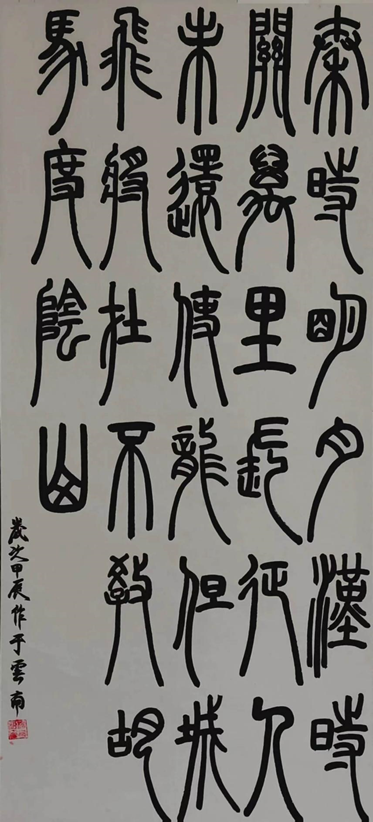 秦時明月漢時
關萬里長征人
未還使龍但城
飛將在不教胡
馬度陰山
歲次甲辰作于雲南